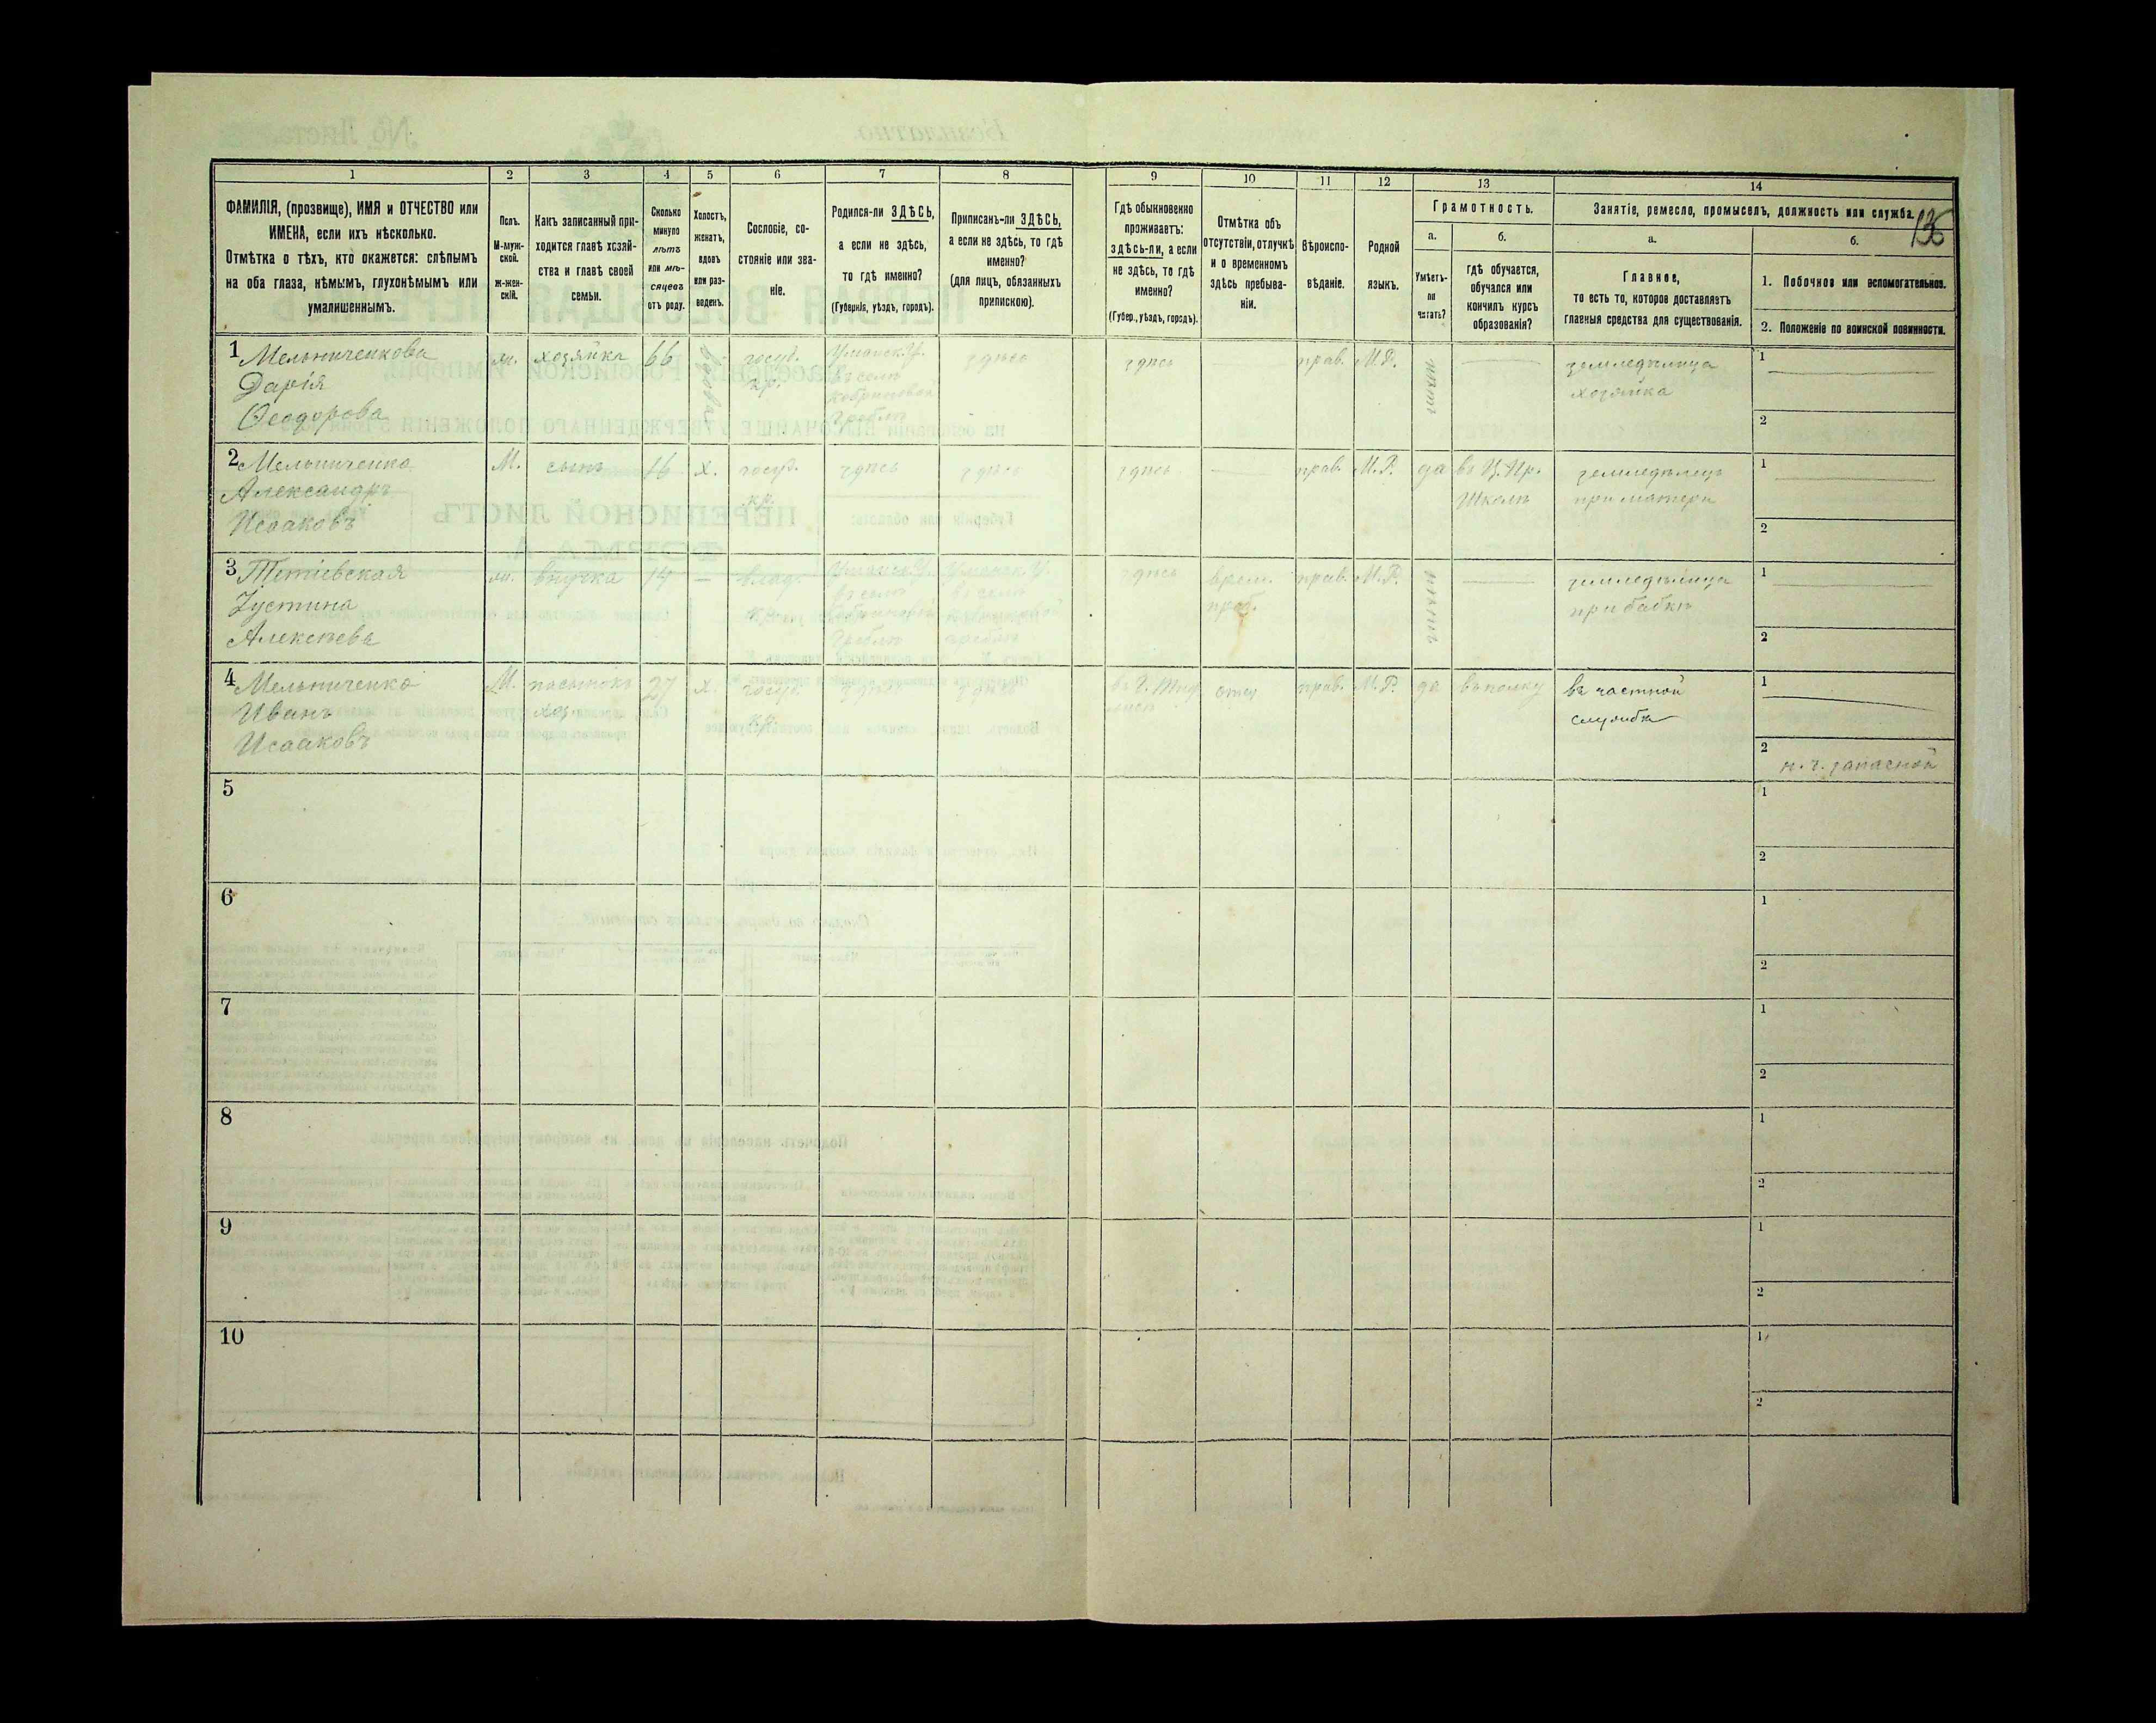 136
1
ФАМИЛІЯ, (прозвище), ИМЯ и ОТЧЕСТВО или
ИМЕНА, если ихъ нѣсколько.
Отмѣтка о тѣхъ, кто окажется: слѣпымъ
на оба глаза, нѣмымъ, глухонѣмымъ или
умалишеннымъ.
2
Полъ.
М-муж-
ской.
ж-жен-
скій.
3
Какъ записанный при-
ходится главѣ хозяй-
ства и главѣ своей
семьи.
4
Сколько
минуло
лѣтъ
или мѣ-
сяцевъ
отъ роду.
5
Холостъ,
женатъ,
вдовъ
или раз-
веденъ.
6
Сословіе, со-
стояніе или зва-
ніе.
7
Родился-ли ЗДѢСЬ,
а если не здѣсь,
то гдѣ именно?
(Губернія, уѣздъ, городъ).
8
Приписанъ-ли ЗДѢСЬ,
а если не здѣсь, то гдѣ
именно?
(для лицъ, обязанныхъ
припискою).
9
Гдѣ обыкновенно
проживаетъ:
здѣсь-ли, а если
не здѣсь, то гдѣ
именно?
(Губер., уѣздъ, городъ).
10
Отмѣтка объ
отсутствіи, отлучкѣ
и о временномъ
здѣсь пребыва-
ніи.
11
Вѣроиспо-
вѣданіе.
12
Родной
языкъ.
13
Грамотность.
а.
Умѣетъ-
ли
читать?
б.
гдѣ обучается,
обучался или
кончилъ курсъ
образованія?
14
Занятіе, ремесло, промыселъ, должность или служба.
а.
Главное,
то есть то, которое доставляетъ
главныя средства для существованія.
б.
1. Побочное или вспомогательное.
2. Положеніе по воинской повинности.
1 Мельниченкова
Дарія
Ѳеодорова
ж.
хозяйка
66
вдова
госуд.
кр.
Уманск. У.
въ селѣ
Кобриновой
Греблѣ
здѣсь
здѣсь
прав.
М.Р.
нѣтъ
земледѣлица
хозяйка
1
2
2 Мельниченко
Александръ
Исааковъ
М.
сынъ
16
х.
госуд.
кр.
здѣсь
здѣсь
здѣсь
прав.
М.Р.
да
въ Ц. Пр.
Школѣ
земледѣлецъ
при матери
1
2
3 Тетіевская
Іустина
Алексѣева
ж.
внучка
14
влад.
кр.
Уманск. У.
въ селѣ
Кобриновой
Греблѣ
Уманск. У.
въ селѣ
Кобриновой
Греблѣ
здѣсь
врем.
преб.
прав.
М.Р.
нѣтъ
земледѣлица
при бабкѣ
1
2
4 Мельниченко
Иванъ
Исааковъ
М.
пасынокъ
хоз.
27
х.
госуд.
кр.
здѣсь
здѣсь
отсу
прав.
М.Р.
да
въ полку
въ частной
службѣ
1
2
н. ч. запасной
5
1
2
6
1
2
7
1
2
8
1
2
9
1
2
10
1
2